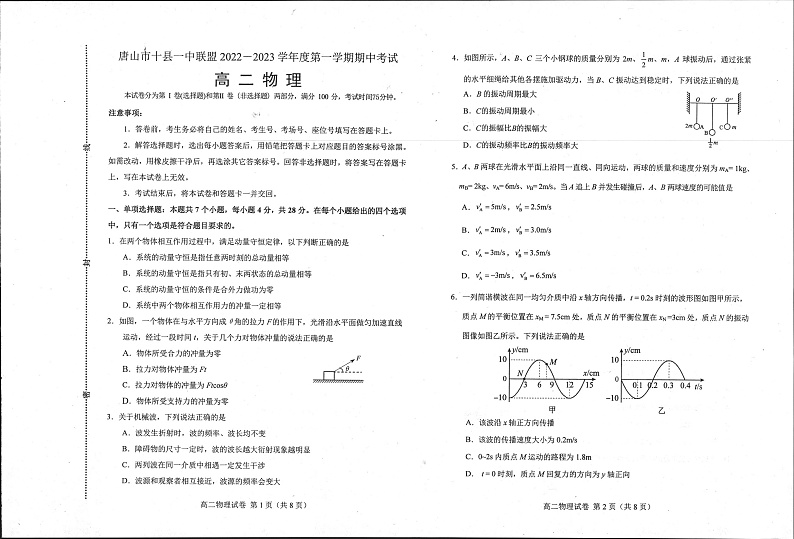 唐山市十县一中联盟 2022－2023 学年度第一学期期中考试
高 二 物 理
本试卷分为第 I 卷(选择题)和第II 卷（非选择题）两部分，满分 100 分，考试时间75分钟。
注意事项：
1．答卷前，考生务必将自己的姓名、考生号、考场号、座位号填写在答题卡上。
2．解答选择题时，选出每小题答案后，用铅笔把答题卡上对应题目的答案标号涂黑。
如需改动，用橡皮擦干净后，再选涂其它答案标号。回答非选择题时，将答案写在答题卡
上，写在本试卷上无效。
3．考试结束后，将本试卷和答题卡一并交回。
一、单项选择题：本题共 7 个小题，每小题 4 分，共 28 分。在每个小题给出的四个选项
中，只有一个选项是符合题目要求的。
1．在两个物体相互作用过程中，满足动量守恒定律，以下判断正确的是
A．系统的动量守恒是指任意两时刻的总动量相等
B．系统的动量守恒是指只有初、末两状态的总动量相等
C．系统的动量守恒的条件是合外力做功为零
D．系统中两个物体相互作用力的冲量一定相等
2．如图，一个物体在与水平方向成 θ角的拉力 F的作用下，光滑沿水平面做匀加速直线
运动，经过一段时间 t，关于几个力对物体冲量的说法正确的是
A．物体所受合力的冲量为零
B．拉力对物体冲量为 Ft
C．拉力对物体的冲量为 Ftcosθ
D．物体所受支持力的冲量为零
F
θ
3．关于机械波，下列说法正确的是
A．波发生折射时，波的频率、波长均不变
B．障碍物的尺寸一定时，波的波长越大衍射现象越明显
C．两列波在同一介质中相遇一定发生干涉
D．波源和观察者相互接近，波源的频率会变大
高二物理试卷 第 1 页（共 8 页）
线
封
密
4．如图所示，A、B、C 三个小钢球的质量分别为 2m、1/2 m、m，A 球振动后，通过张紧
的水平细绳给其他各摆施加驱动力，当 B、C 振动达到稳定时，下列说法正确的是
A．B 的振动周期最大
B．C的振动周期最小
C．C的振幅比B的振幅大
D．C的振动频率比B的振动频率大
O O′ O″
2m A C m
B
1/2 m
5．A、B 两球在光滑水平面上沿同一直线、同向运动，两球的质量和速度分别为 mA= 1kg、
mB= 2kg、vA= 6m/s、vB= 2m/s。当 A 追上 B 并发生碰撞后，A、B 两球速度的可能值是
A．v′A = 5m/s，v′B = 2.5m/s
B．v′A = 2m/s，v′B = 3.0m/s
C．v′A = 3m/s，v′B = 3.5m/s
D．v′A = −3m/s，v′B = 6.5m/s
6．一列简谐横波在同一均匀介质中沿 x 轴方向传播，t = 0.2s 时刻的波形图如图甲所示，
质点 M 的平衡位置在 xM = 7.5cm 处，质点 N 的平衡位置在 xN =3cm 处，质点 N 的振动
图像如图乙所示。下列说法正确的是
y/cm
10
M
N
x/cm
0 3 6 9 12 15
−10
甲
y/cm
10
0 0.1 0.2 0.3 0.4 t/s
−10
乙
A．该波沿 x 轴正方向传播
B．该波的传播速度大小为 0.2m/s
C．0~2s 内质点 M 运动的路程为 1.8m
D． t = 0 时刻，质点 M 回复力的方向为 y 轴正向
高二物理试卷 第 2 页（共 8 页）